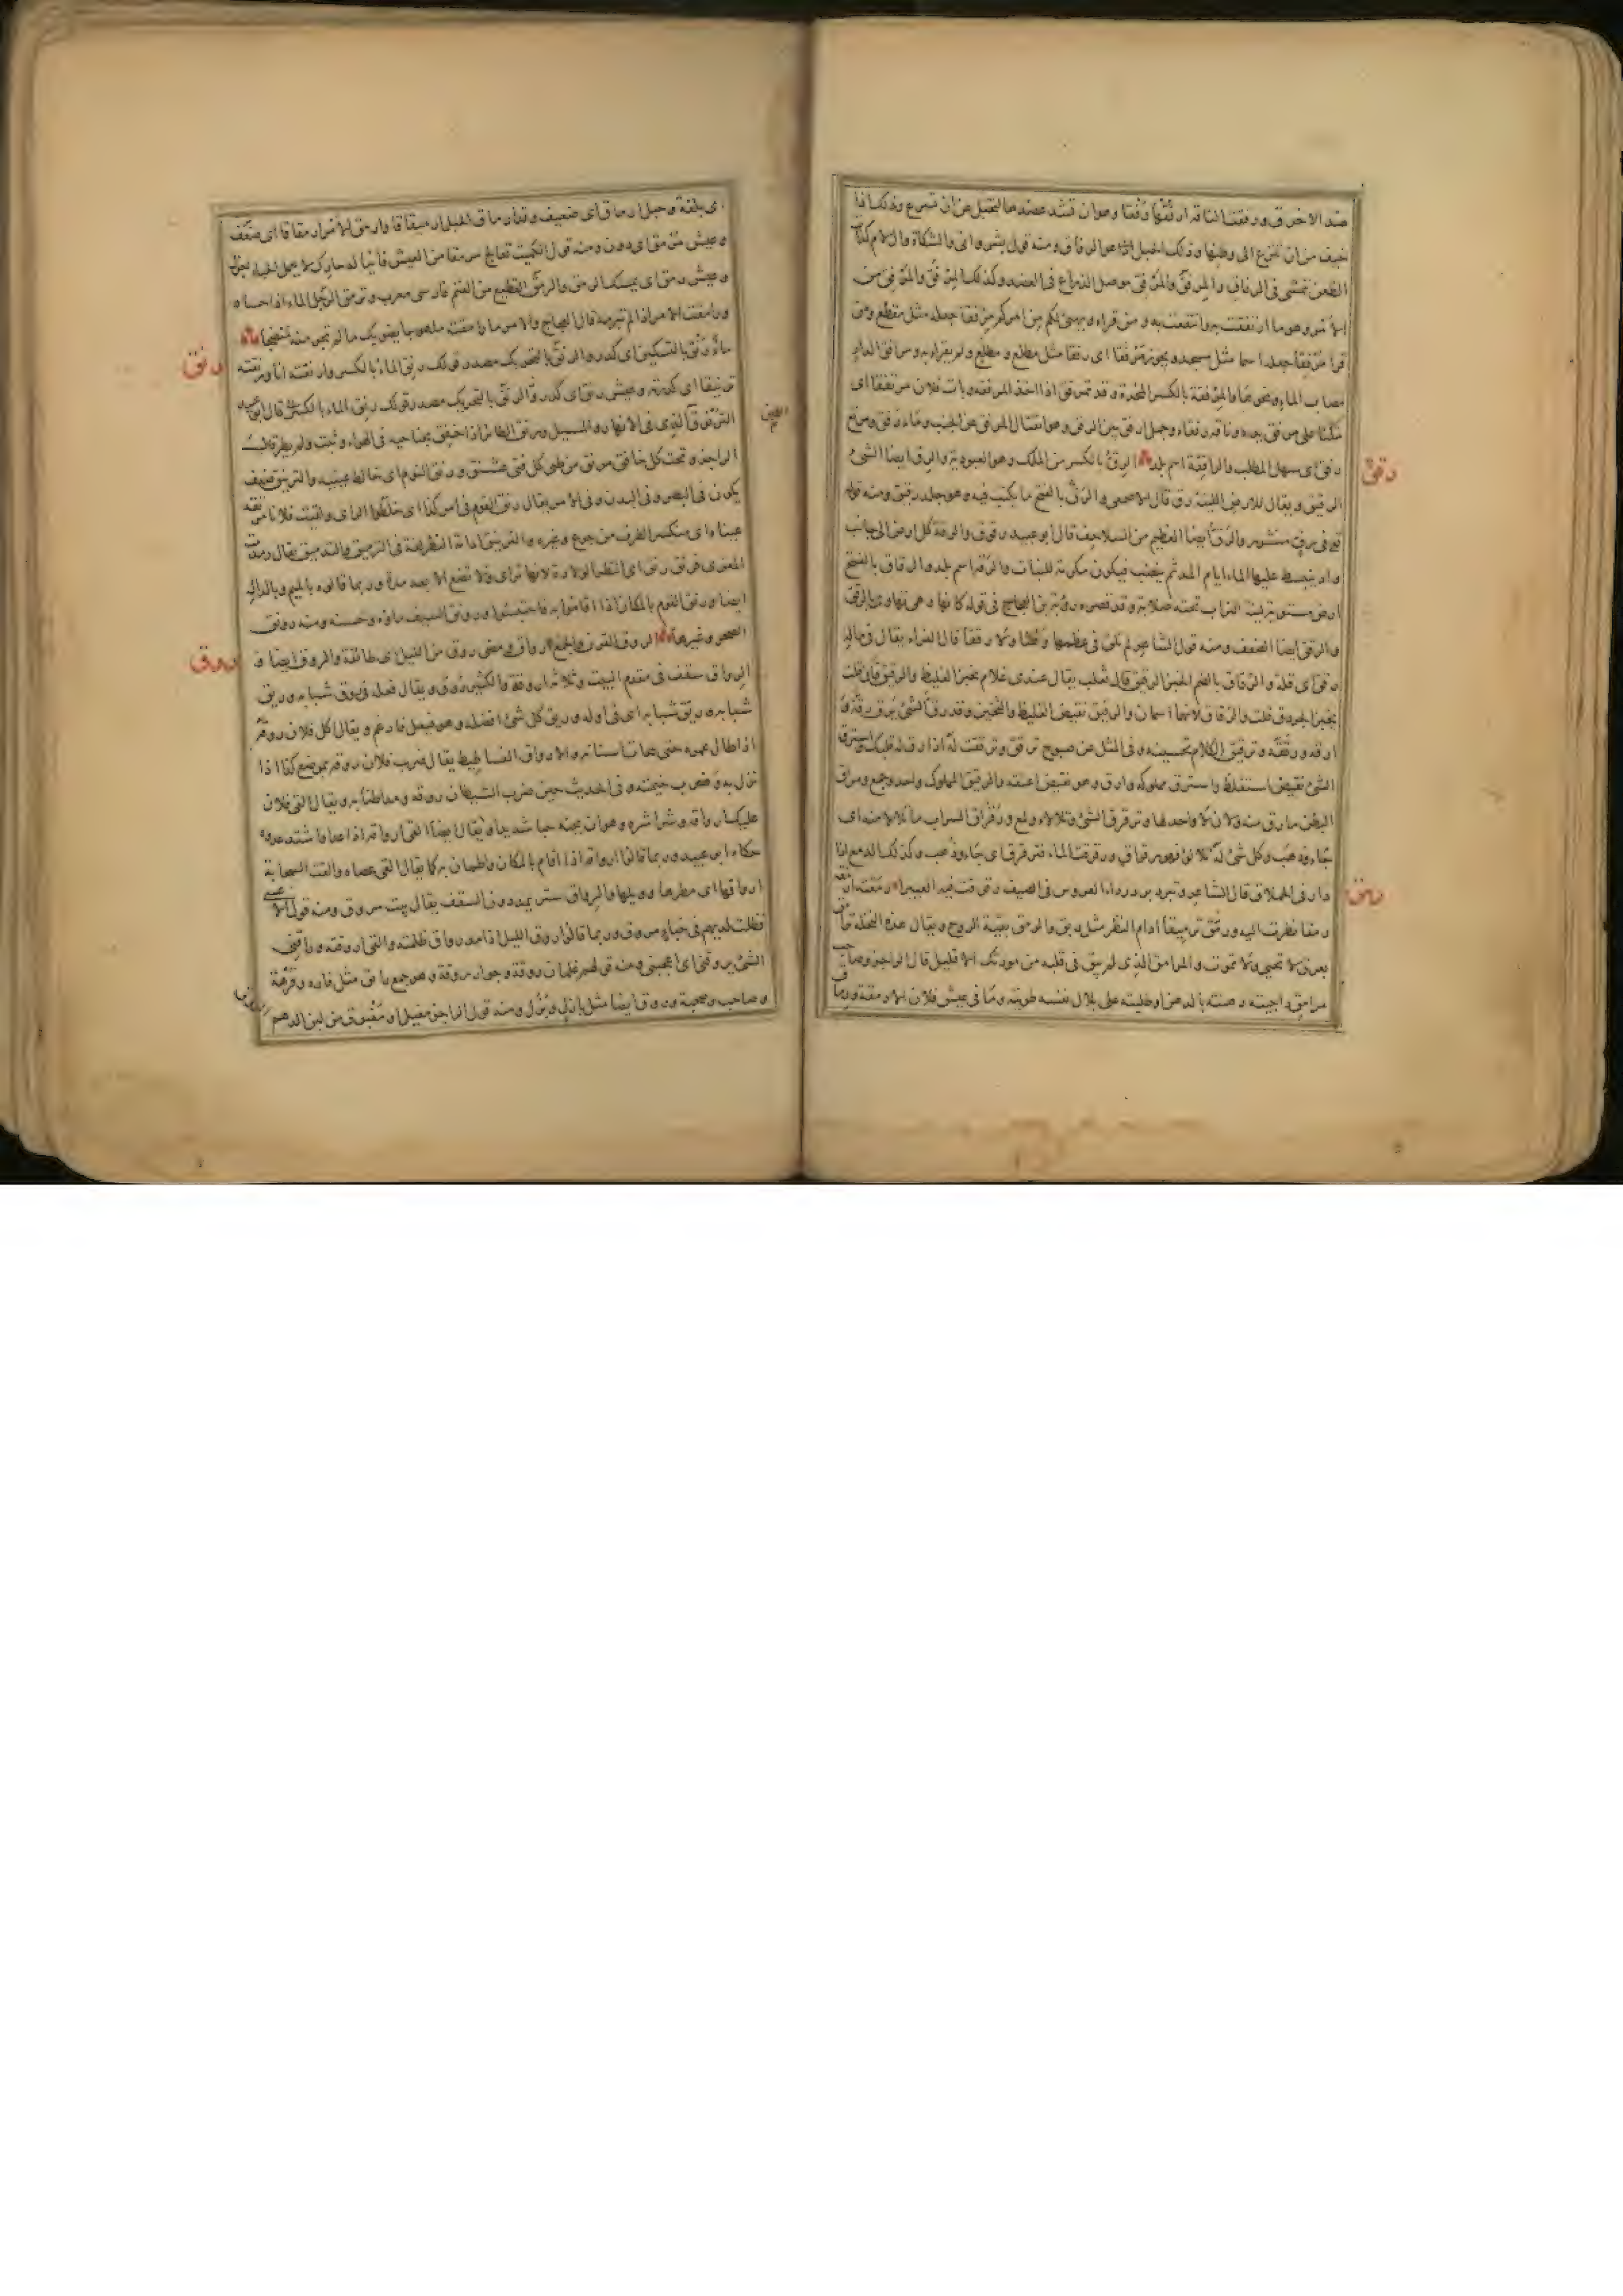 ضد الاخرق ورفقت الناقة ارفقها رفقا وهوان تشد عضدها لتخبل عن ان تسرع وذلك اذا
خيف من ان تنزع الى وطنها وذلك الحبل هو الرفاق ومنه قول بشر وانى والشكاة وال لام كذات
الضغن تمشى فى الرفاق والمرفق والمرفق موصل الذراع فى العضد وكذلك المرفق والمرفق من
الامر وهو ما ارتفقت به وانتفعت به ومن قراء ويهيئ لكم من امركم مرفقا جعله مثل مقطع ومن
قرأ مرفقا جعله اسما مثل مسجد ويجوز مرفقا اى رفقا مثل مطلع ومطلع ولم يقرا به ومرافق الدار
مصاب الماء ونحوها والمرفقة بالكسر المخدة وقد تمرفق اذا اخذ المرفقة وبات فلان مرتفقا اى
متكئا على مرفق يده وناقة رفقاء وجمل ارفق بين الرفق وهو انفتال المرفق عن الجنب وماء رفق ومرتع
رفق اى سهل المطلب والرافقة اسم بلد الرق بالكسر من الملك وهو العبودية والرق ايضا الشئ
رقق
الرقيق ويقال للارض اللينة رق قال الاصمعى والرق بالفتح ما يكتب فيه وهو جلد رقيق ومنه قوله
تع فى رق منشور والرق ايضا العظيم من السلاحف قال ابو عبيد رقوق والرقة كل ارض الى جانب
واد ينبسط عليها الماء ايام المد ثم ينضب فيكون مكرمة للنبات والرقة اسم بلد والرقاق بالفتح
ارض مستوية لينة التراب تحته صلابة وقد قصره رؤبة بن العجاج فى قوله كانها وهى تهاوى بالرقق
والرقق ايضا الضعف ومنه قول الشاعر لم تلق فى عظمها وهنا ولا رققا قال الفراء يقال فى ماله
رقق اى قلة والرقاق بالضم الخبز الرقيق قال ثعلب يقال عندى غلام يخبز الغليظ والرقيق فان قلت
يخبز الجردق قلت والرقاق لانهما اسمان والرقيق نقيض الغليظ والثخين وقد رق الشئ يرق رقة و
ارقه ورققه وترقيق الكلام تحسينه وفى المثل عن صبوح ترقق وترققت له اذا رق له قلبك واسترق
الشئ نقيض استغلظ واسترق مملوكه وارق وهو نقيض اعتقه والرقيق المملوك واحد وجمع ومراق
البطن ما رق منه ولان لا واحد لها وترقرق الشئ وتلالاء ولمع ورقراق السراب ما تلالا منه اى
جاء وذهب وكل شئ له تلالؤ فهو رقراق ورقرقت الماء فترقرق اى جاء وذهب وكذلك الدمع اذا
دار فى الحملاق قال الشاعر وتبرد برد رداء العروس فى الصيف رقرقت فيه العبيرا رمقته ارمقه
رمق
رمقا نظرت اليه ورمق ترميقا ادام النظر مثل رنق والرمق بقية الروح ويقال هذه النخلة ترامق
بعرق لا تحيى ولا تموت والمرامق الذى لم يبق فى قلبه من مودتك الا قليل قال الراجز وصاحب
مرامق داجيته دهنته بالدهن او طليته على بلال نفسه طويته وما فى عيش فلان الا رمقة ورماق
اى بلغة وحبل ارماق اى ضعيف وقد ارماق الحبل ارميقاقا وارمق الامر ارمقاقا اى ضعف
وعيش مرمق اى دون ومنه قول الكميت تعالج مرمقا من العيش فانيا له حارك لا يحمل العبء
وعيش رمق اى يمسك الرمق والرمق القطيع من الغنم فارسى معرب وترمق الرجل الماء اذا حساه
ورامقت الامر اذا لم تبرمه قال العجاج والامر ما رامقته ملهوجا يضويك ما لم تجى منه منضجا
رنق
ماء رنق بالتسكين اى كدر والرنق بالتحريك مصدر قولك رنق الماء بالكسر وارنقته انا ورنقته
ترنيقا اى كدرته وعيش رنق اى كدر والرنق بالتحريك مصدر قولك رنق الماء بالكسر قال ابو عبيد
الترنوق الذى فى الانهار والمسيل ورنق الطائر اذا خفق بجناحيه فى الهواء وثبت ولم يطر قال
العين
الراجز وتحت كل خافق مرنق من طى كل فتى عشنق ورنق النوم اى خالط عينيه والترنيق ضعف
يكون فى البصر وفى البدن وفى الامر يقال رنق القوم فى امر كذا اى خلطوا الراى ولقيت فلانا مرنقة
عيناه اى منكسر الطرف من جوع وغيره والترنيق ادامة النظر لغة فى الترميق والتدنيق يقال رمدت
المعزى فرنق رنق اى انتظر الولادة لانها ترى ولا تضع الا بعد مدة وربما قالوه بالميم وبالدال
ايضا ورنق القوم بالمكان اذا اقاموا به واحتبسوا ورونق السيف ماؤه وحسنه ومنه رونق
الضحى وغيرها الروق القرن والجمع ارواق ومضى روق من الليل اى طائفة والروق ايضا و
روق
الرواق سقف فى مقدم البيت وثلاثة اروقة والكثير روق ويقال فعله فى روق شبابه وريق
شبابه وريق شبابه اى فى اوله وريق كل شئ افضله وهو فيعل فادغم ويقال اكل فلان روقه
اذا طال عمره حتى تحات اسنانه والارواق الفساطيط يقال ضرب فلان روقه بموضع كذا اذا
نزل به وضرب خيمته وفى الحديث حين ضرب الشيطان روقه ومد اطنابه ويقال القى فلان
عليك ارواقه وشراشره وهو ان يحبه حبا شديدا ويقال ايضا القى ارواقه اذا عدا واشتد عدوه
حكاه ابو عبيد وربما قالوا ارواقه اذا اقام بالمكان واطمان به كما يقال القى عصاه والقت السحابة
ارواقها اى مطرها ووبلها والرواق ستر يمد دون السقف يقال بيت مروق ومنه قول الاعشى
فظلت لديهم فى خباء مروق وربما قالوا روق الليل اذا مد رواق ظلمته والقى اروقته وراقنى
الشئ يروقنى اى اعجبنى ومنه قولهم غلمان روقة وجوار روقة وهو جمع رائق مثل فاره وفرهة
وصاحب وصحبة وروق ايضا مثل بازل وبزل ومنه قول الراجز مقيل او مغبوق من لبن الدهم
الروق